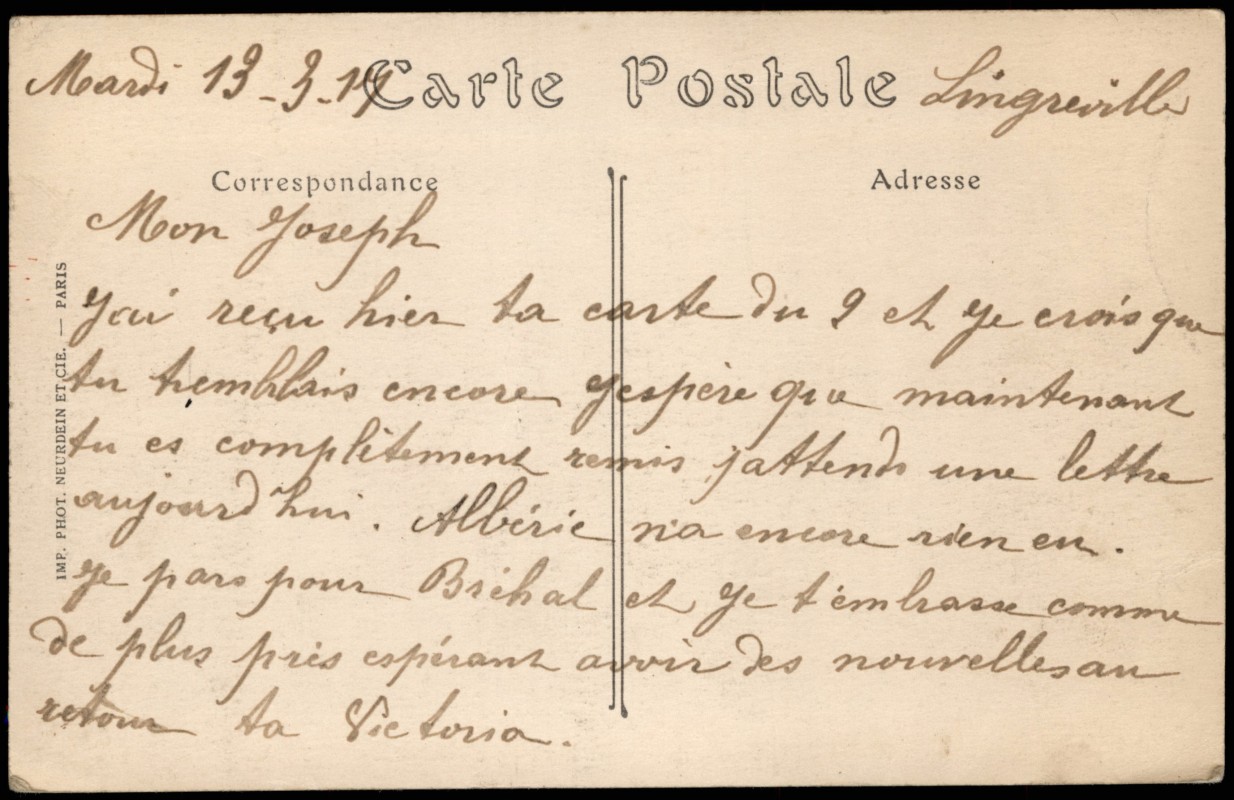 Mardi 13-3-17 Carte Postale Lingreville
Correspondance
Adresse
Mon Joseph
J'ai reçu hier ta carte du 9 et je crois que
tu tremblais encore j'espère que maintenant
tu es complètement remis j'attends une lettre
aujourd'hui. Albéric n'a encore rien eu.
je pars pour Bréhal et je t'embrasse comme
de plus près espérant avoir des nouvelles au
retour ta Victoria.
IMP. PHOT. NEURDEIN ET CIE. — PARIS